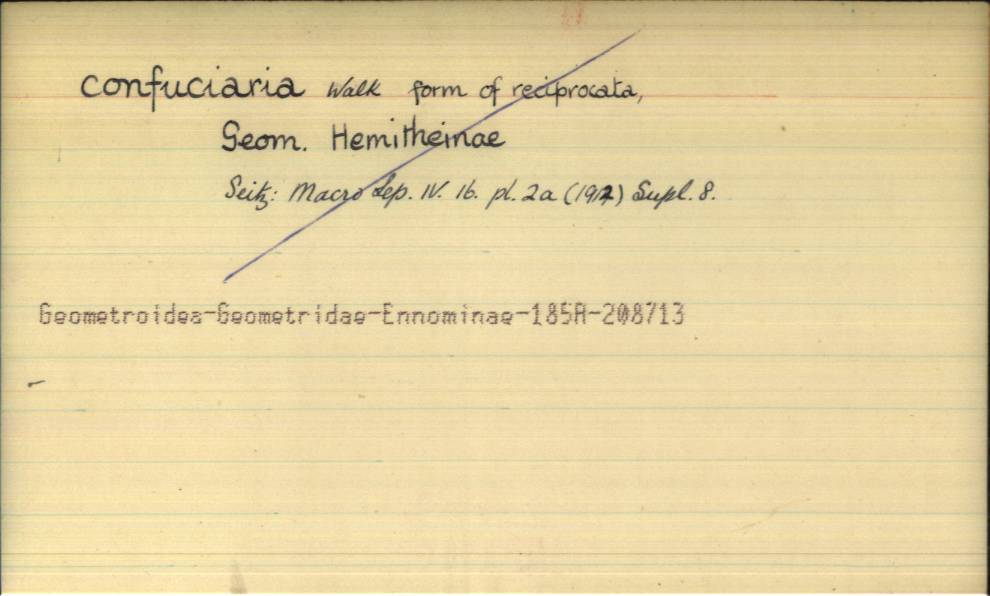 confuciaria Walk form of reciprocata,
Geom. Hemitheinae
Seitz: Macro Lep. IV. 16. pl. 2a (1912) Supl. 8.
Geometroidea-Geometridae-Ennominae-185A-208713